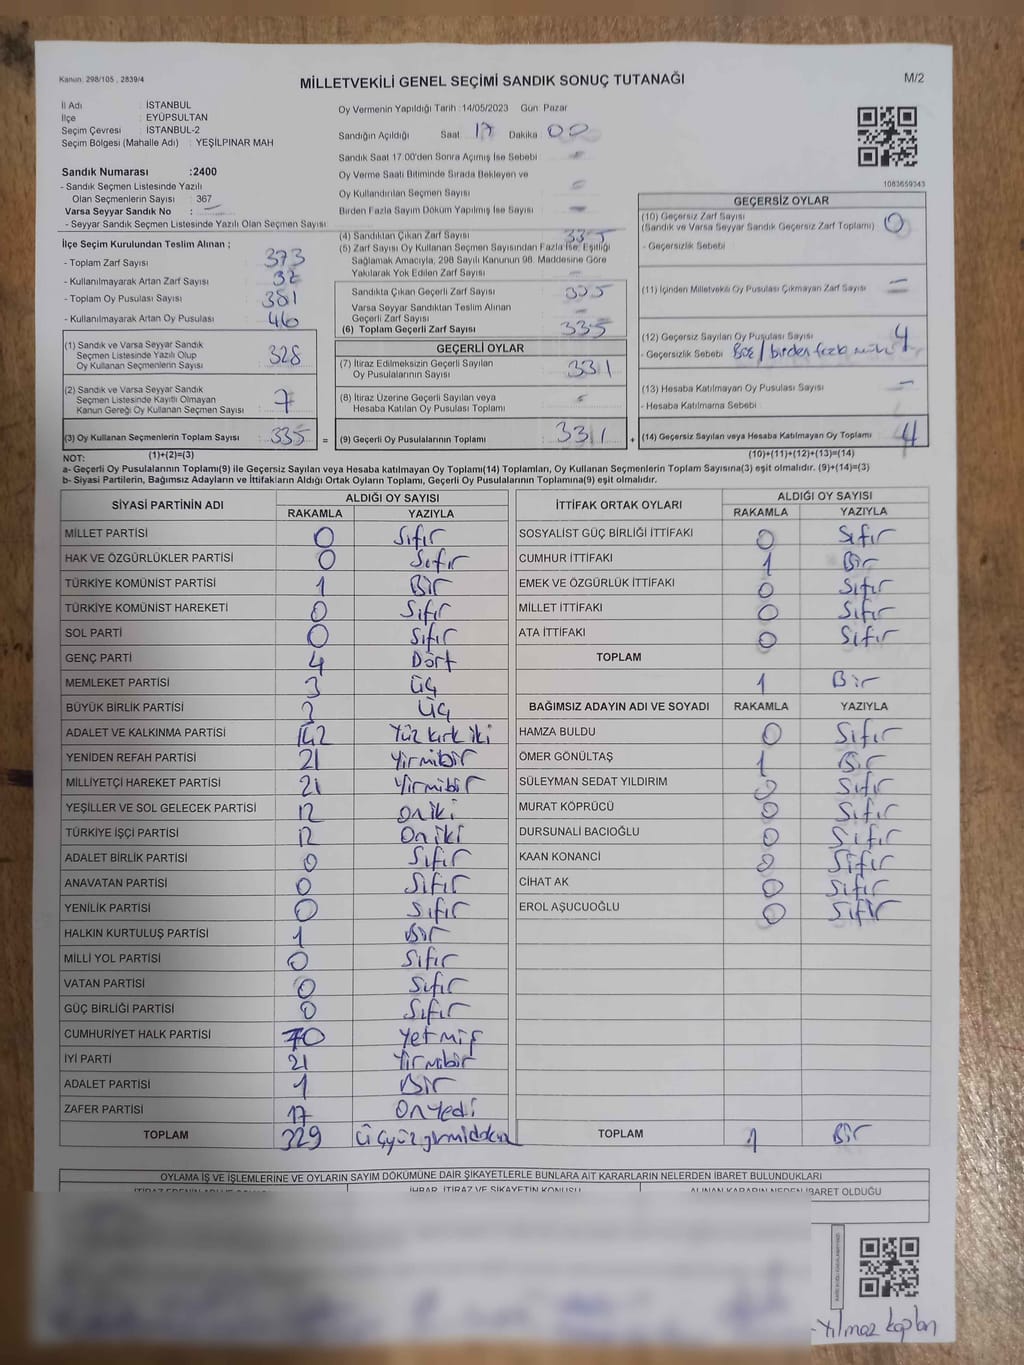 Kanun: 298/105 , 2839/4
MİLLETVEKİLİ GENEL SEÇİMİ SANDIK SONUÇ TUTANAĞI
M/2
İl Adı : İSTANBUL
İlçe : EYÜPSULTAN
Seçim Çevresi : İSTANBUL-2
Seçim Bölgesi (Mahalle Adı) : YEŞİLPINAR MAH
Sandık Numarası :2400
- Sandık Seçmen Listesinde Yazılı
Olan Seçmenlerin Sayısı : 367
Varsa Seyyar Sandık No : –
- Seyyar Sandık Seçmen Listesinde Yazılı Olan Seçmen Sayısı
İlçe Seçim Kurulundan Teslim Alınan ;
- Toplam Zarf Sayısı 373
- Kullanılmayarak Artan Zarf Sayısı 38
- Toplam Oy Pusulası Sayısı 381
- Kullanılmayarak Artan Oy Pusulası 46
(1) Sandık ve Varsa Seyyar Sandık
Seçmen Listesinde Yazılı Olup
Oy Kullanan Seçmenlerin Sayısı 328
(2) Sandık ve Varsa Seyyar Sandık
Seçmen Listesinde Kayıtlı Olmayan
Kanun Gereği Oy Kullanan Seçmen Sayısı 7
(3) Oy Kullanan Seçmenlerin Toplam Sayısı : 335 =
Oy Vermenin Yapıldığı Tarih : 14/05/2023 Gün: Pazar
Sandığın Açıldığı Saat 17 Dakika 00
Sandık Saat 17:00'den Sonra Açımış İse Sebebi –
Oy Verme Saati Bitiminde Sırada Bekleyen ve
Oy Kullandırılan Seçmen Sayısı –
Birden Fazla Sayım Döküm Yapılmış İse Sayısı –
(4) Sandıktan Çıkan Zarf Sayısı 335
(5) Zarf Sayısı Oy Kullanan Seçmen Sayısından Fazla İse, Eşitliği
Sağlamak Amacıyla, 298 Sayılı Kanunun 98. Maddesine Göre
Yakılarak Yok Edilen Zarf Sayısı –
Sandıkta Çıkan Geçerli Zarf Sayısı 335
Varsa Seyyar Sandıktan Teslim Alınan
Geçerli Zarf Sayısı –
(6) Toplam Geçerli Zarf Sayısı 335
GEÇERLİ OYLAR
(7) İtiraz Edilmeksizin Geçerli Sayılan
Oy Pusulalarının Sayısı 331
(8) İtiraz Üzerine Geçerli Sayılan veya
Hesaba Katılan Oy Pusulası Toplamı –
(9) Geçerli Oy Pusulalarının Toplamı 331 +
1083659343
GEÇERSİZ OYLAR
(10) Geçersiz Zarf Sayısı
(Sandık ve Varsa Seyyar Sandık Geçersiz Zarf Toplamı) 0
- Geçersizlik Sebebi
(11) İçinden Milletvekili Oy Pusulası Çıkmayan Zarf Sayısı –
(12) Geçersiz Sayılan Oy Pusulası Sayısı 4
- Geçersizlik Sebebi Boş / birden fazla mühür
(13) Hesaba Katılmayan Oy Pusulası Sayısı –
- Hesaba Katılmama Sebebi
(14) Geçersiz Sayılan veya Hesaba Katılmayan Oy Toplamı 4
NOT: (1)+(2)=(3) (10)+(11)+(12)+(13)=(14)
a- Geçerli Oy Pusulalarının Toplamı(9) ile Geçersiz Sayılan veya Hesaba katılmayan Oy Toplamı(14) Toplamları, Oy Kullanan Seçmenlerin Toplam Sayısına(3) eşit olmalıdır. (9)+(14)=(3)
b- Siyasi Partilerin, Bağımsız Adayların ve İttifakların Aldığı Ortak Oyların Toplamı, Geçerli Oy Pusulalarının Toplamına(9) eşit olmalıdır.
SİYASİ PARTİNİN ADI ALDIĞI OY SAYISI
RAKAMLA YAZIYLA
MİLLET PARTİSİ 0 Sıfır
HAK VE ÖZGÜRLÜKLER PARTİSİ 0 Sıfır
TÜRKİYE KOMÜNİST PARTİSİ 1 Bir
TÜRKİYE KOMÜNİST HAREKETİ 0 Sıfır
SOL PARTİ 0 Sıfır
GENÇ PARTİ 4 Dört
MEMLEKET PARTİSİ 3 üç
BÜYÜK BİRLİK PARTİSİ 3 Üç
ADALET VE KALKINMA PARTİSİ 142 Yüz kırk iki
YENİDEN REFAH PARTİSİ 21 Yirmibir
MİLLİYETÇİ HAREKET PARTİSİ 21 Yirmibir
YEŞİLLER VE SOL GELECEK PARTİSİ 12 oniki
TÜRKİYE İŞÇİ PARTİSİ 12 Oniki
ADALET BİRLİK PARTİSİ 0 Sıfır
ANAVATAN PARTİSİ 0 Sıfır
YENİLİK PARTİSİ 0 Sıfır
HALKIN KURTULUŞ PARTİSİ 1 Bir
MİLLİ YOL PARTİSİ 0 Sıfır
VATAN PARTİSİ 0 Sıfır
GÜÇ BİRLİĞİ PARTİSİ 0 Sıfır
CUMHURİYET HALK PARTİSİ 70 Yetmiş
İYİ PARTİ 21 Yirmibir
ADALET PARTİSİ 1 Bir
ZAFER PARTİSİ 17 Onyedi
TOPLAM 329
İTTİFAK ORTAK OYLARI ALDIĞI OY SAYISI
RAKAMLA YAZIYLA
SOSYALİST GÜÇ BİRLİĞİ İTTİFAKI 0 Sıfır
CUMHUR İTTİFAKI 1 Bir
EMEK VE ÖZGÜRLÜK İTTİFAKI 0 Sıfır
MİLLET İTTİFAKI 0 Sıfır
ATA İTTİFAKI 0 Sıfır
TOPLAM
1 Bir
BAĞIMSIZ ADAYIN ADI VE SOYADI RAKAMLA YAZIYLA
HAMZA BULDU 0 Sıfır
ÖMER GÖNÜLTAŞ 1 Bir
SÜLEYMAN SEDAT YILDIRIM 0 Sıfır
MURAT KÖPRÜCÜ 0 Sıfır
DURSUNALİ BACIOĞLU 0 Sıfır
KAAN KONANCİ 0 Sıfır
CİHAT AK 0 Sıfır
EROL AŞUCUOĞLU 0 Sıfır
TOPLAM 1 Bir
OYLAMA İŞ VE İŞLEMLERİNE VE OYLARIN SAYIM DÖKÜMÜNE DAİR ŞİKAYETLERLE BUNLARA AİT KARARLARIN NELERDEN İBARET BULUNDUKLARI
İHBAR, İTİRAZ VE ŞİKAYETİN KONUSU ALINAN KARARIN NEDEN İBARET OLDUĞU
- Yılmaz Kaplan